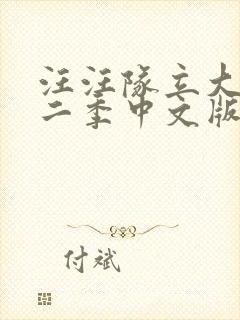 汪汪队立大
二季中文版
付斌